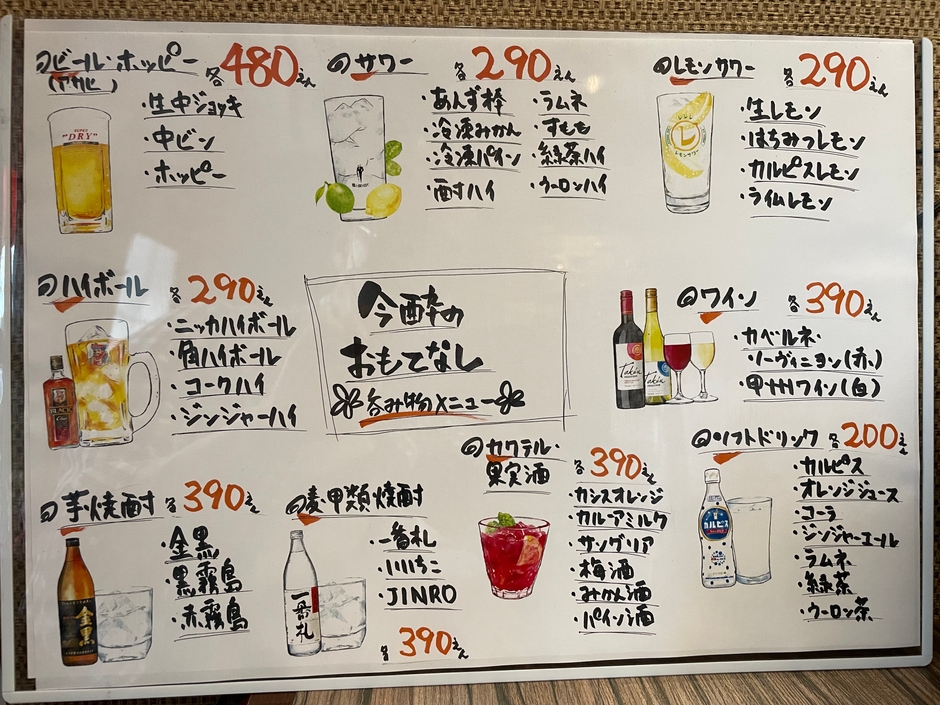 ビール・ホッピー 各480えん
(アサヒ)
SUPER
"DRY"
・生中ジョッキ
・中ビン
・ホッピー
サワー 各290えん
・あんず棒
・冷凍みかん
・冷凍パイン
・酎ハイ
・ラムネ
・すもも
・緑茶ハイ
・ウーロンハイ
レモンサワー 各290えん
レ
レモンサワー
・生レモン
・はちみつレモン
・カルピスレモン
・ライムレモン
ハイボール 各290えん
BLACK
・ニッカハイボール
・角ハイボール
・コークハイ
・ジンジャーハイ
今酔の
おもてなし
呑み物メニュー
ワイン 各390えん
Takun
Takun
・カベルネ
ソーヴィニヨン(赤)
・甲州ワイン(白)
芋・焼酎 各390えん
金黒
・金黒
・黒霧島
・赤霧島
麦・甲類・焼酎
一番札
・一番札
・いいちこ
・JINRO
各390えん
カクテル・
果実酒
各390えん
・カシスオレンジ
・カルーアミルク
・サングリア
・梅酒
・みかん酒
・パイン酒
ソフトドリンク 各200えん
カルピス
・カルピス
・オレンジジュース
・コーラ
・ジンジャーエール
・ラムネ
・緑茶
・ウーロン茶